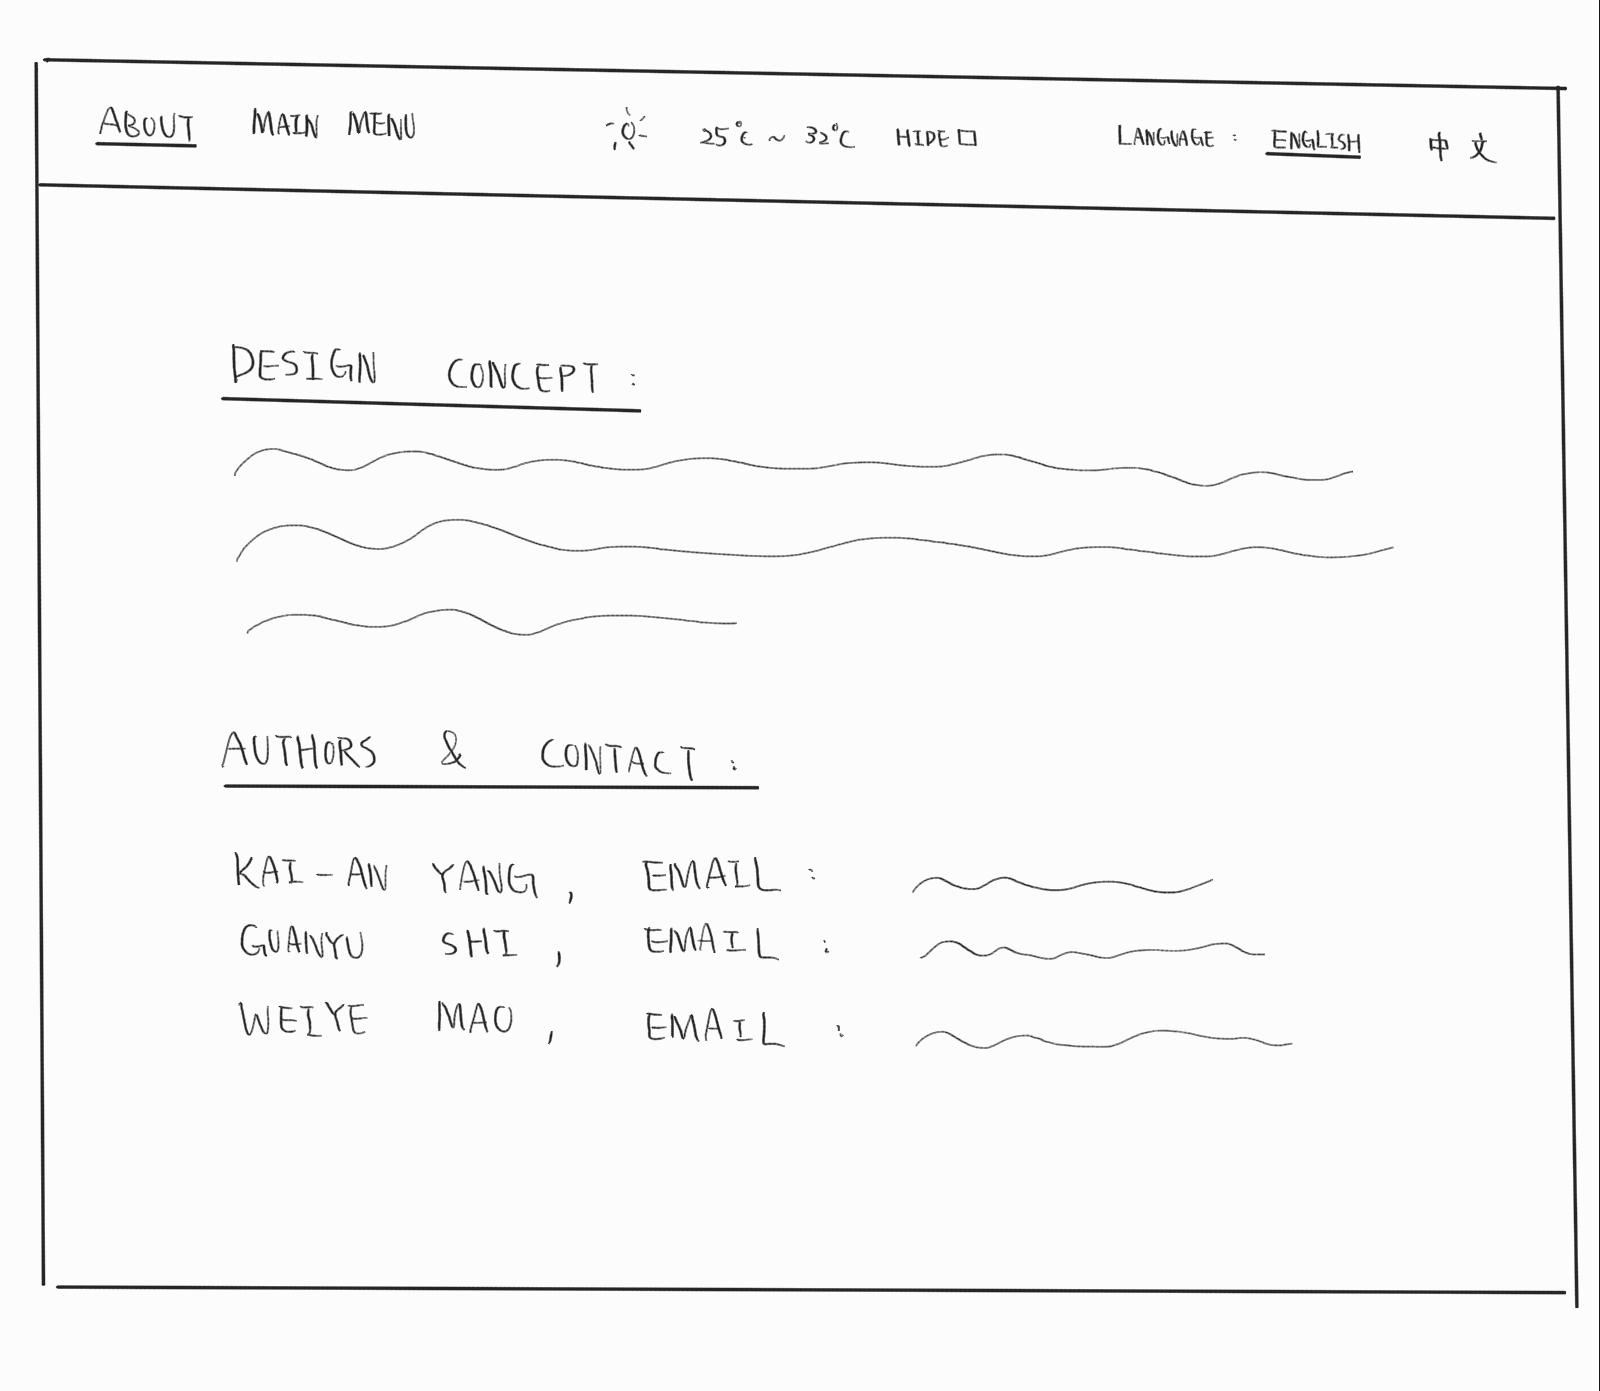 ABOUT MAIN MENU 25°C ~ 32°C HIDE LANGUAGE : ENGLISH 中文
DESIGN CONCEPT :
AUTHORS & CONTACT :
KAI-AN YANG, EMAIL :
GUANYU SHI, EMAIL :
WEIYE MAO, EMAIL :